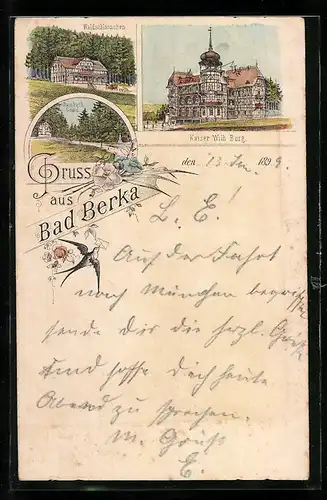 Waldschlösschen
Kaiser Wilh. Burg.
Gruss
aus
Bad Berka
den 13. 1899.
L. E.!
Auf der Fahrt
nach München begriffen
sende dir die herzl. Grüße
Und hoffe dich heute
Abend zu sprechen.
M. Gruß
E.